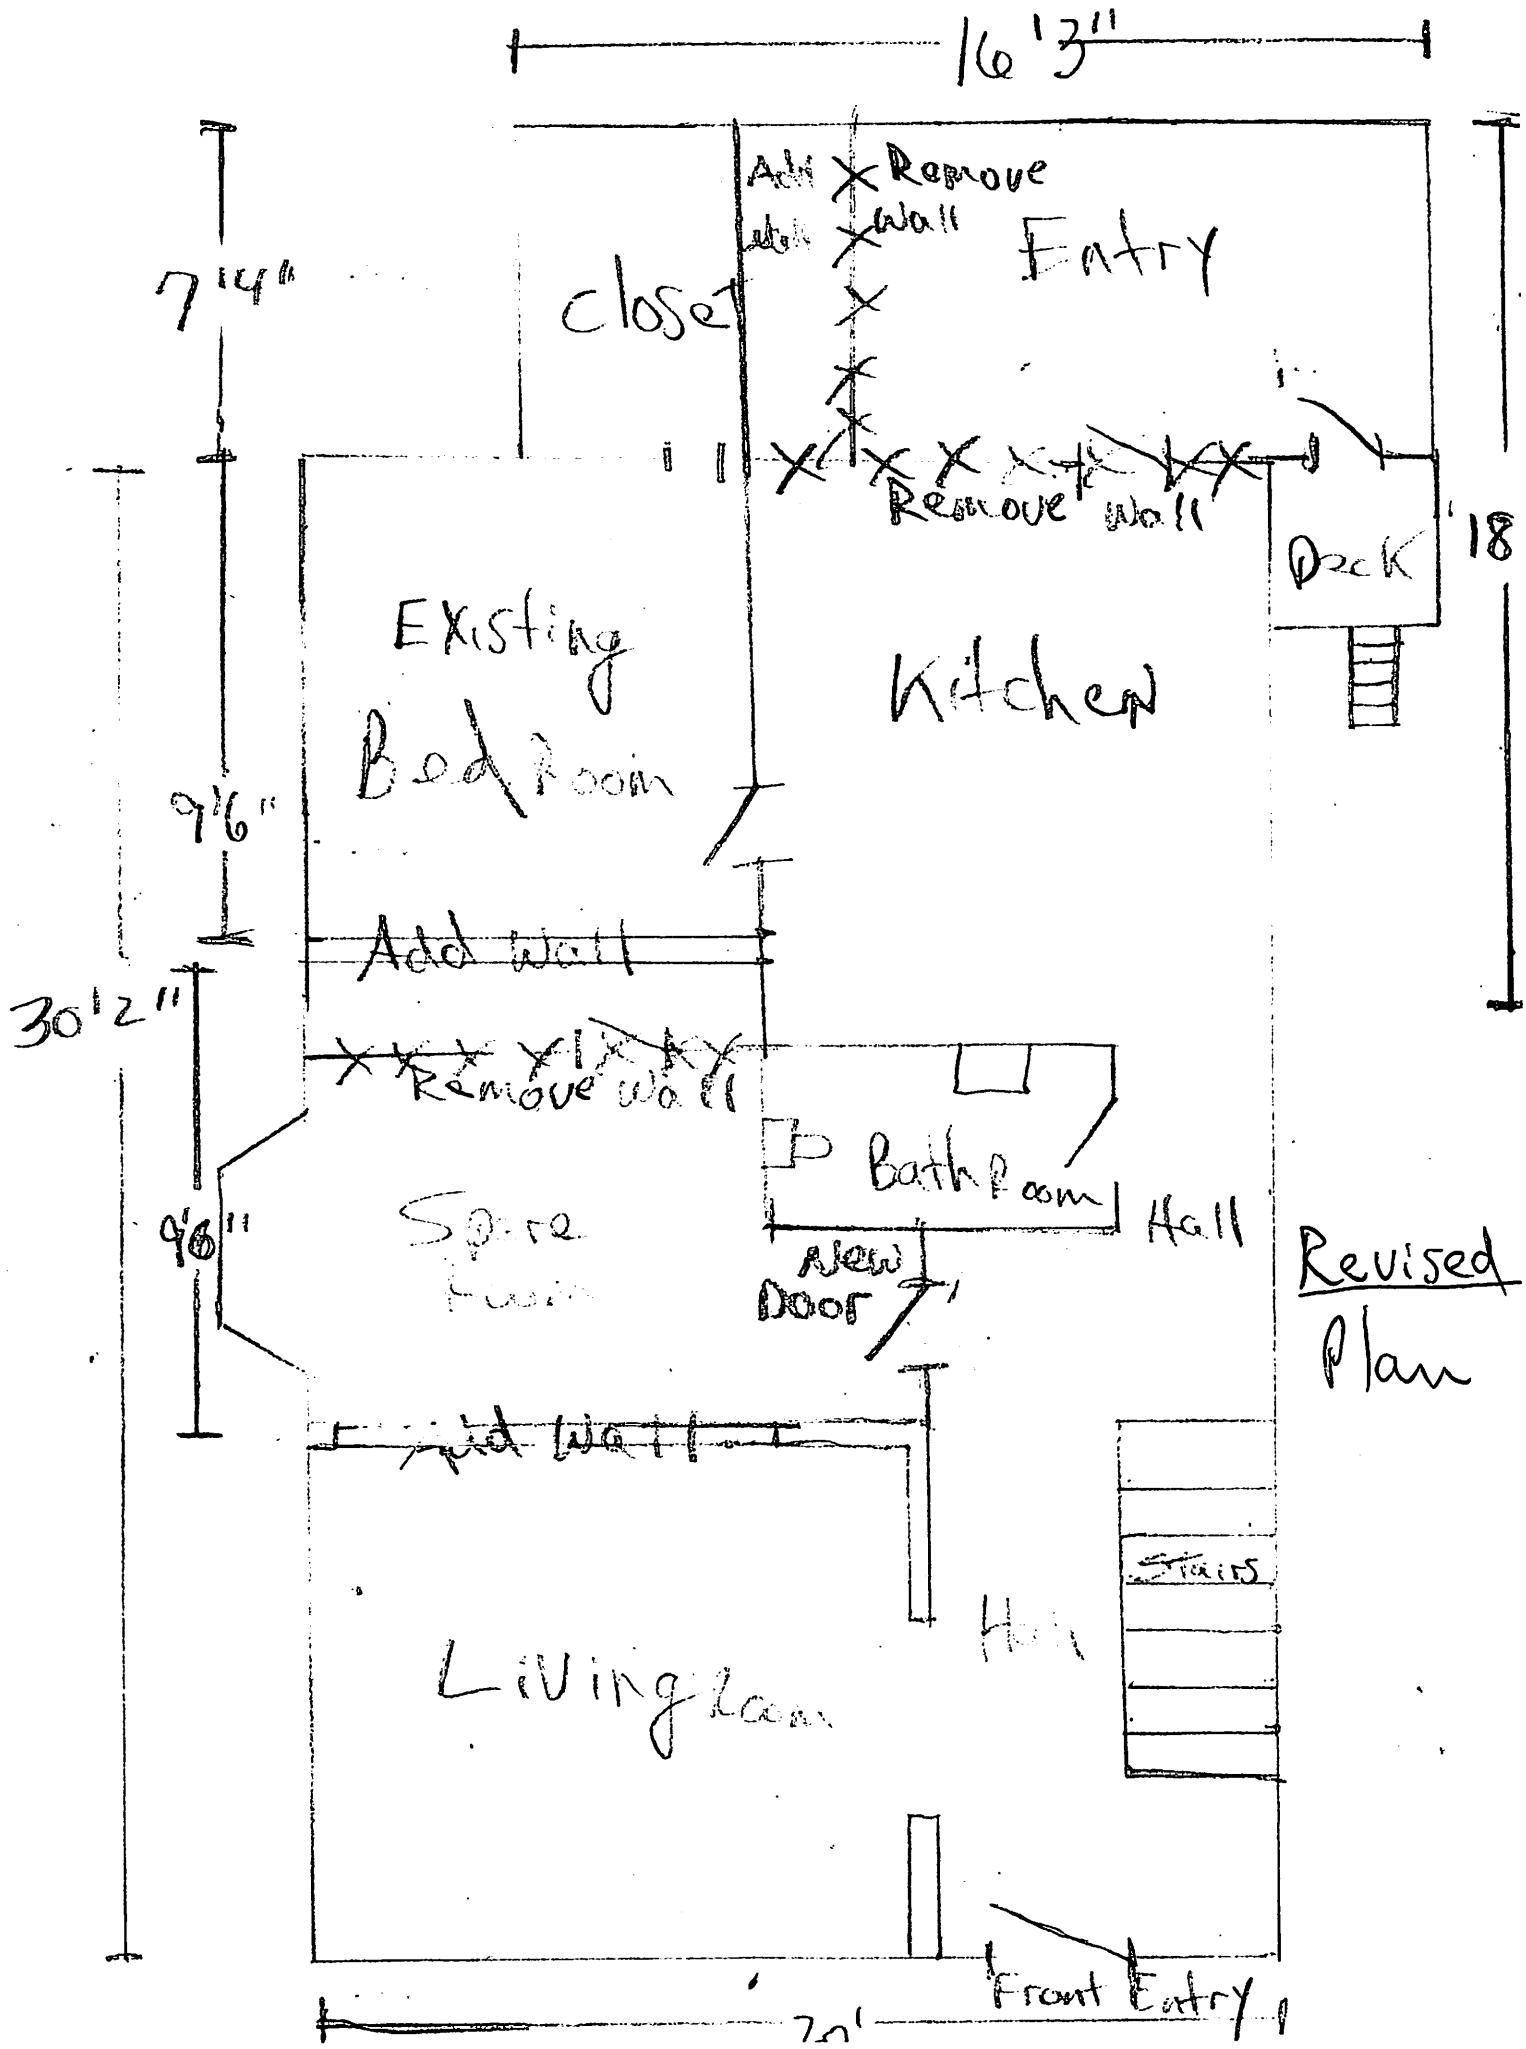 16'3"
Add
Remove
Wall
Entry
7'4"
Closet
Remove Wall
Deck
18'
Existing
Bed Room
Kitchen
9'6"
Add Wall
30'2"
Remove Wall
Bath Room
Hall
Spare
9'6"
New
Door
Revised
Plan
Add Wall
Stairs
Hall
Living Room
Front Entry
20'